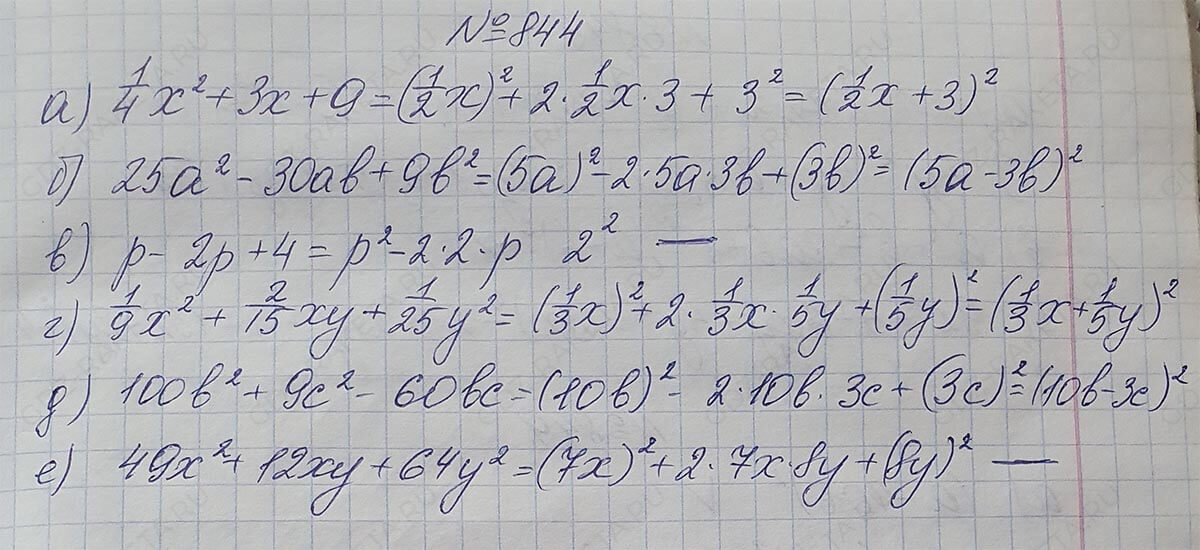 №844
а) 1/4x² + 3x + 9 = (1/2x)² + 2·1/2x·3 + 3² = (1/2x + 3)²
б) 25a² - 30ab + 9b² = (5a)² - 2·5a·3b + (3b)² = (5a - 3b)²
в) p - 2p + 4 = p² - 2·2·p 2² —
г) 1/9x² + 2/15xy + 1/25y² = (1/3x)² + 2·1/3x·1/5y + (1/5y)² = (1/3x + 1/5y)²
д) 100b² + 9c² - 60bc = (10b)² - 2·10b·3c + (3c)² = (10b - 3c)²
е) 49x² + 12xy + 64y² = (7x)² + 2·7x·8y + (8y)² —